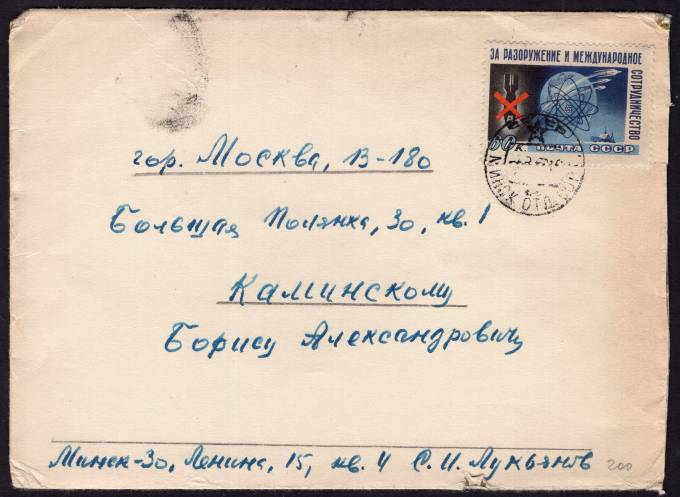 ЗА РАЗОРУЖЕНИЕ И МЕЖДУНАРОДНОЕ
СОТРУДНИЧЕСТВО
60 К.
ПОЧТА СССР
МИНСК ОТД.
гор. Москва, В-180
Большая Полянка, 30, кв. 1
Каминскому
Борису Александровичу
Минск-30, Ленина, 15, кв. 4 С. И. Лукьянов
200